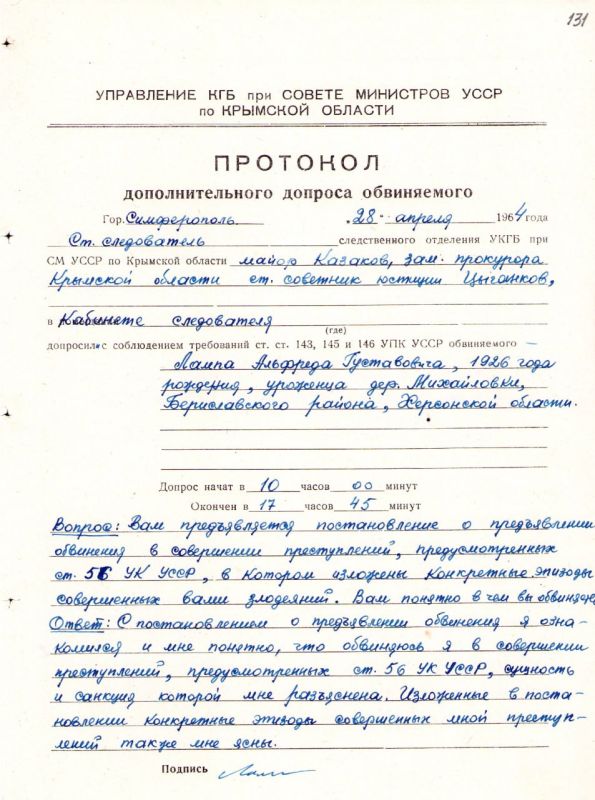 131
УПРАВЛЕНИЕ КГБ при СОВЕТЕ МИНИСТРОВ УССР
по КРЫМСКОЙ ОБЛАСТИ
ПРОТОКОЛ
дополнительного допроса обвиняемого
Гор. Симферополь „28" апреля 1964 года
Ст. следователь следственного отделения УКГБ при
СМ УССР по Крымской области майор Казаков, зам. прокурора
Крымской области ст. советник юстиции Цыганков,
в Кабинете следователя
(где)
допросили с соблюдением требований ст. ст. 143, 145 и 146 УПК УССР обвиняемого —
Лампа Альфреда Густавовича, 1926 года
рождения, уроженца дер. Михайловки,
Бериславского района, Херсонской области.
Допрос начат в 10 часов 00 минут
Окончен в 17 часов 45 минут
Вопрос: Вам предъявляется постановление о предъявлении
обвинения в совершении преступлений, предусмотренных
ст. 56 УК УССР, в котором изложены конкретные эпизоды
совершенных вами злодеяний. Вам понятно в чем вы обвиняетесь
Ответ: С постановлением о предъявлении обвинения я озна-
комился и мне понятно, что обвиняюсь я в совершении
преступлений, предусмотренных ст. 56 УК УССР, сущность
и санкция которой мне разъяснена. Изложенные в поста-
новлении конкретные эпизоды совершенных мной преступ-
лений также мне ясны.
Подпись